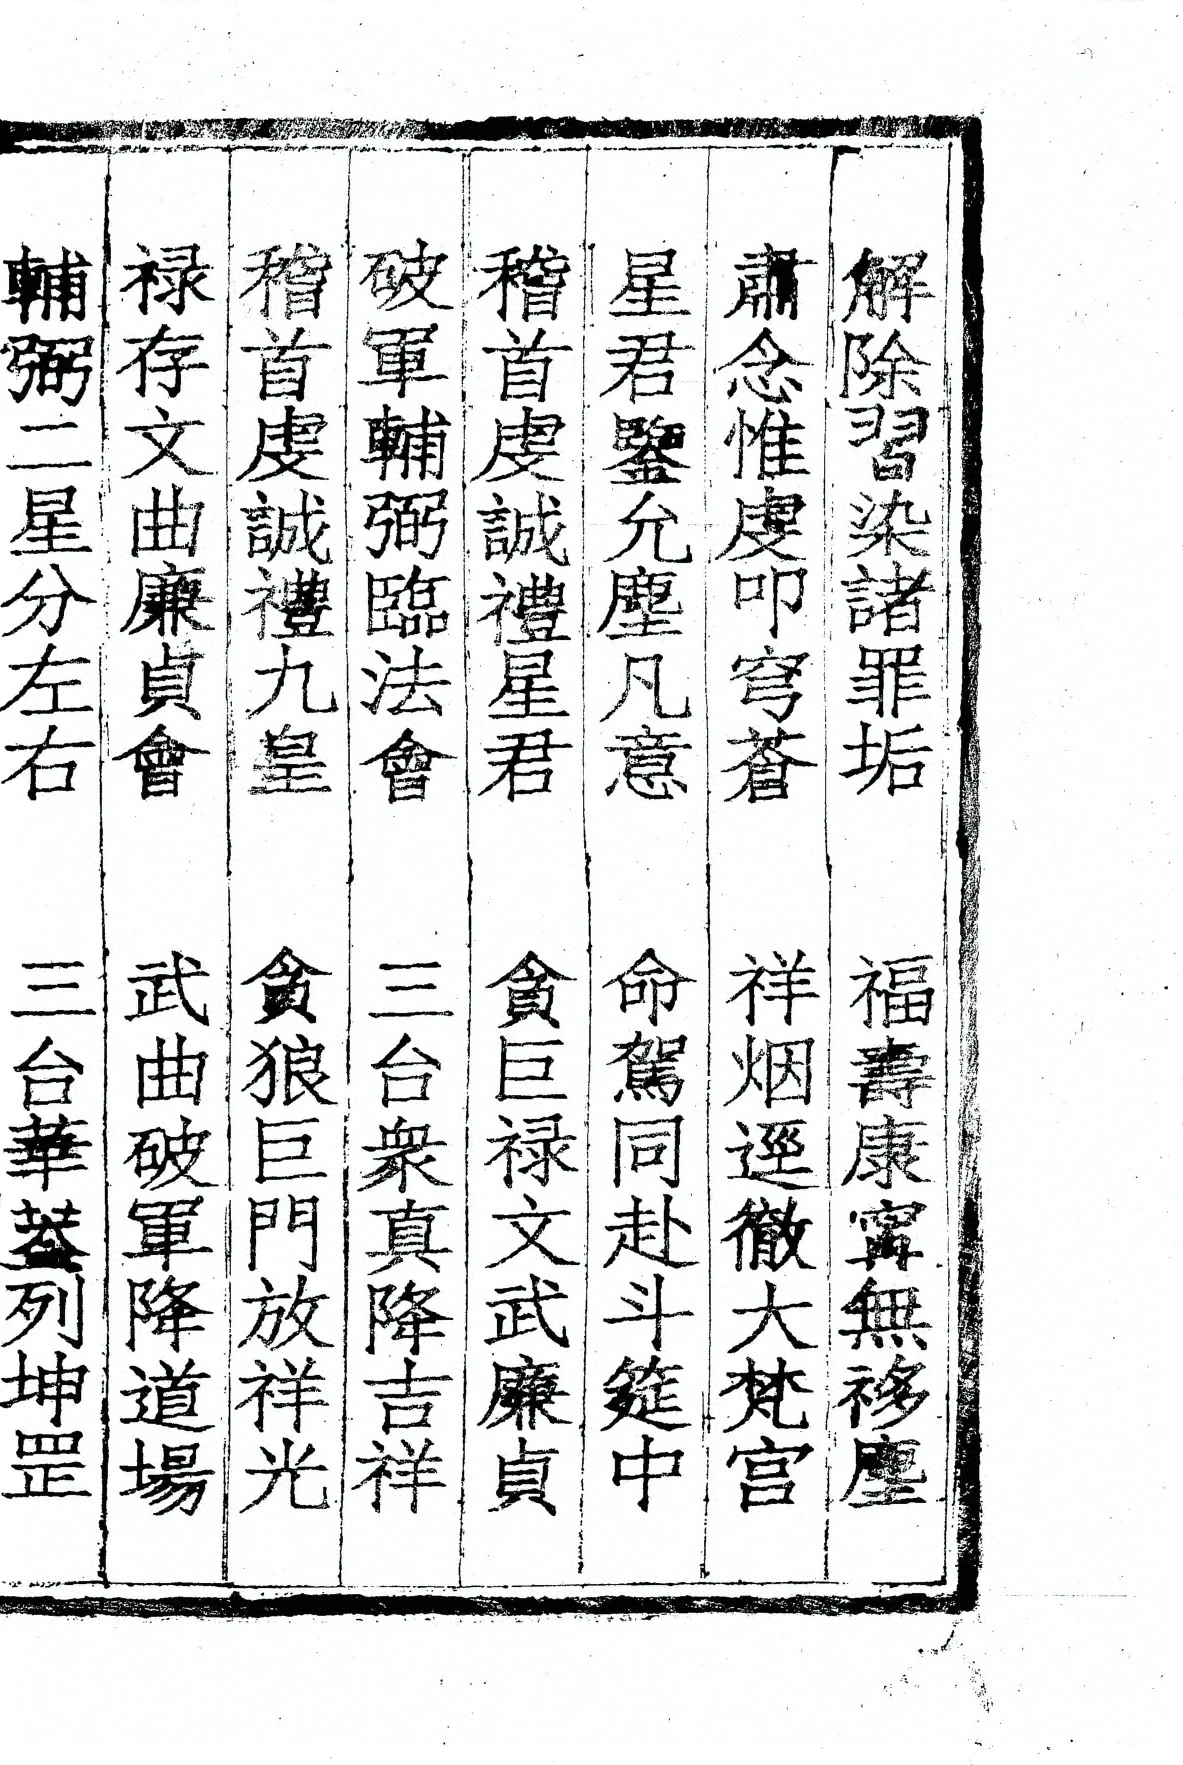 解除習染諸罪垢　福壽康寧無移塵
肅念惟虔叩穹蒼　祥烟逕徹大梵宮
星君鑒允塵凡意　命駕同赴斗筵中
稽首虔誠禮星君　貪巨禄文武廉貞
破軍輔弼臨法會　三台衆真降吉祥
稽首虔誠禮九皇　貪狼巨門放祥光
禄存文曲廉貞會　武曲破軍降道場
輔弼二星分左右　三台華蓋列坤罡